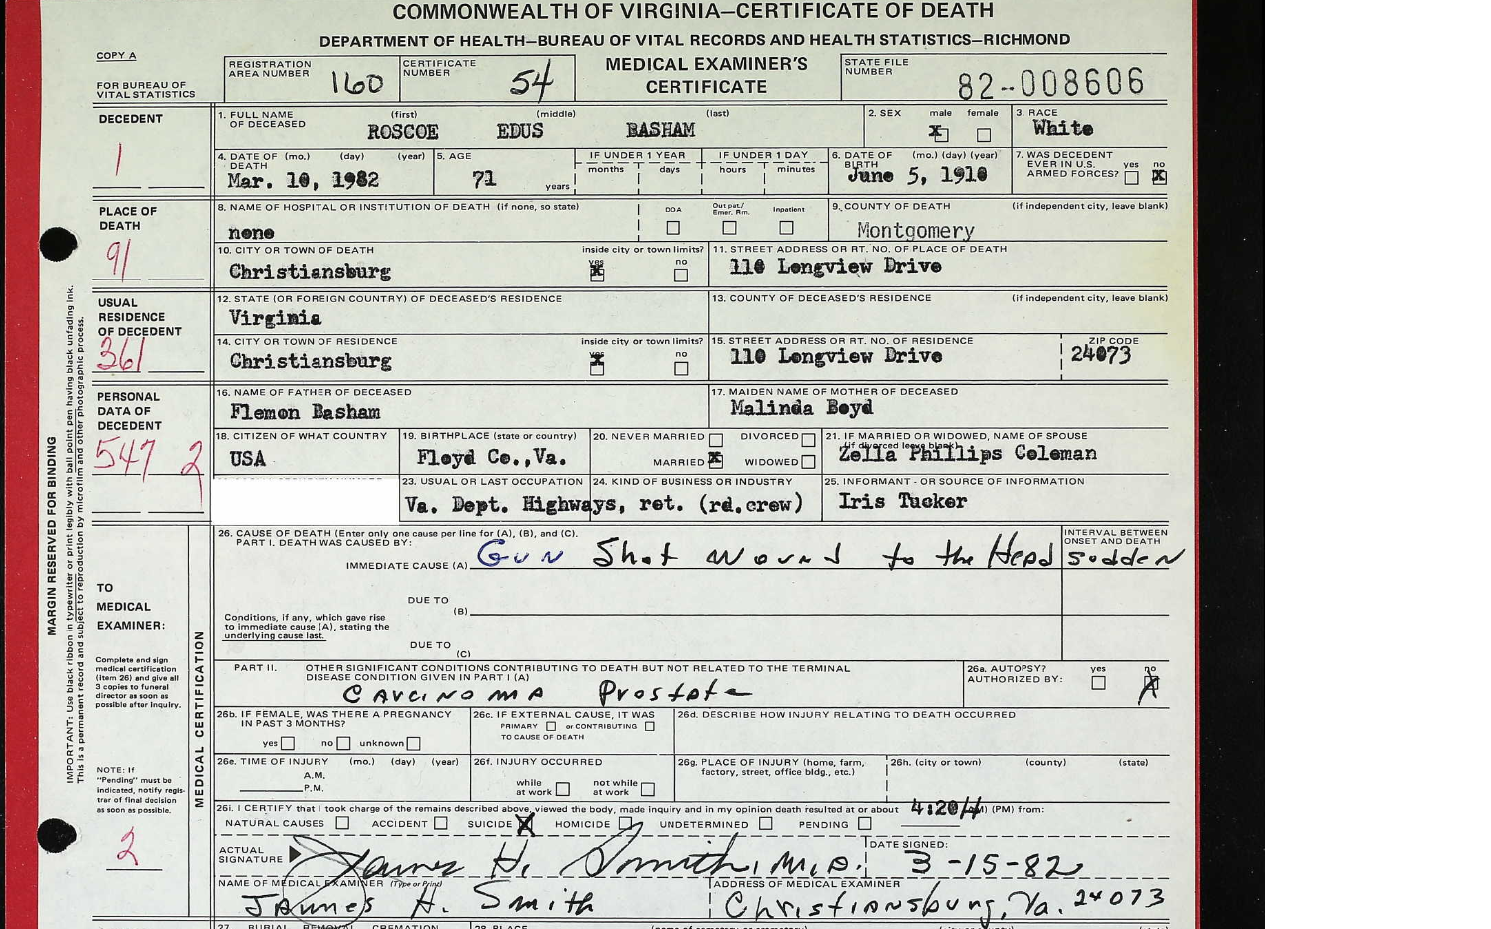 COMMONWEALTH OF VIRGINIA—CERTIFICATE OF DEATH
DEPARTMENT OF HEALTH—BUREAU OF VITAL RECORDS AND HEALTH STATISTICS—RICHMOND
COPY A
FOR BUREAU OF VITAL STATISTICS
REGISTRATION AREA NUMBER 160
CERTIFICATE NUMBER 54
MEDICAL EXAMINER'S CERTIFICATE
STATE FILE NUMBER 82--008606
DECEDENT
1
1. FULL NAME OF DECEASED (first) (middle) (last)
ROSCOE EDUS BASHAM
2. SEX male female
X
3. RACE
White
4. DATE OF DEATH (mo.) (day) (year)
Mar. 10, 1982
5. AGE
71 years
IF UNDER 1 YEAR
months days
IF UNDER 1 DAY
hours minutes
6. DATE OF BIRTH (mo.) (day) (year)
June 5, 1910
7. WAS DECEDENT EVER IN U.S. ARMED FORCES? yes no
X
PLACE OF DEATH
91
8. NAME OF HOSPITAL OR INSTITUTION OF DEATH (if none, so state)
none
DOA Out pat./ Emer. Rm. Inpatient
9. COUNTY OF DEATH (if independent city, leave blank)
Montgomery
10. CITY OR TOWN OF DEATH inside city or town limits? yes no
Christiansburg X
11. STREET ADDRESS OR RT. NO. OF PLACE OF DEATH
110 Longview Drive
USUAL RESIDENCE OF DECEDENT
361
12. STATE (OR FOREIGN COUNTRY) OF DECEASED'S RESIDENCE
Virginia
13. COUNTY OF DECEASED'S RESIDENCE (if independent city, leave blank)
14. CITY OR TOWN OF RESIDENCE inside city or town limits? yes no
Christiansburg X
15. STREET ADDRESS OR RT. NO. OF RESIDENCE
110 Longview Drive
ZIP CODE
24073
PERSONAL DATA OF DECEDENT
547 2
16. NAME OF FATHER OF DECEASED
Flemon Basham
17. MAIDEN NAME OF MOTHER OF DECEASED
Malinda Boyd
18. CITIZEN OF WHAT COUNTRY
USA
19. BIRTHPLACE (state or country)
Floyd Co.,Va.
20. NEVER MARRIED DIVORCED
MARRIED X WIDOWED
21. IF MARRIED OR WIDOWED, NAME OF SPOUSE
(if divorced leave blank)
Zella Phillips Coleman
23. USUAL OR LAST OCCUPATION
24. KIND OF BUSINESS OR INDUSTRY
Va. Dept. Highways, ret. (rd.crew)
25. INFORMANT - OR SOURCE OF INFORMATION
Iris Tucker
MARGIN RESERVED FOR BINDING
IMPORTANT: Use black ribbon in typewriter or print legibly with ball point pen having black unfading ink.
This is a permanent record and subject to reproduction by microfilm and other photographic process.
TO MEDICAL EXAMINER:
Complete and sign medical certification (item 26) and give all 3 copies to funeral director as soon as possible after inquiry.
NOTE: If "Pending" must be indicated, notify registrar of final decision as soon as possible.
2
MEDICAL CERTIFICATION
26. CAUSE OF DEATH (Enter only one cause per line for (A), (B), and (C).
PART I. DEATH WAS CAUSED BY:
IMMEDIATE CAUSE (A) Gun Shot wound to the Head
INTERVAL BETWEEN ONSET AND DEATH
sudden
DUE TO (B)
Conditions, if any, which gave rise to immediate cause (A), stating the underlying cause last.
DUE TO (C)
PART II. OTHER SIGNIFICANT CONDITIONS CONTRIBUTING TO DEATH BUT NOT RELATED TO THE TERMINAL DISEASE CONDITION GIVEN IN PART I (A)
Carcinoma Prostate
26a. AUTOPSY? AUTHORIZED BY: yes no
X
26b. IF FEMALE, WAS THERE A PREGNANCY IN PAST 3 MONTHS?
yes no unknown
26c. IF EXTERNAL CAUSE, IT WAS
PRIMARY or CONTRIBUTING
TO CAUSE OF DEATH
26d. DESCRIBE HOW INJURY RELATING TO DEATH OCCURRED
26e. TIME OF INJURY (mo.) (day) (year)
A.M.
P.M.
26f. INJURY OCCURRED
while at work not while at work
26g. PLACE OF INJURY (home, farm, factory, street, office bldg., etc.)
26h. (city or town) (county) (state)
26i. I CERTIFY that I took charge of the remains described above, viewed the body, made inquiry and in my opinion death resulted at or about 4:20 (AM) (PM) from:
NATURAL CAUSES ACCIDENT SUICIDE X HOMICIDE UNDETERMINED PENDING
ACTUAL SIGNATURE James H. Smith, M.D.
DATE SIGNED:
3-15-82
NAME OF MEDICAL EXAMINER (Type or Print)
James H. Smith
ADDRESS OF MEDICAL EXAMINER
Christiansburg, Va. 24073
27. BURIAL REMOVAL CREMATION
28. PLACE (name of cemetery or crematory) (city or county) (state)